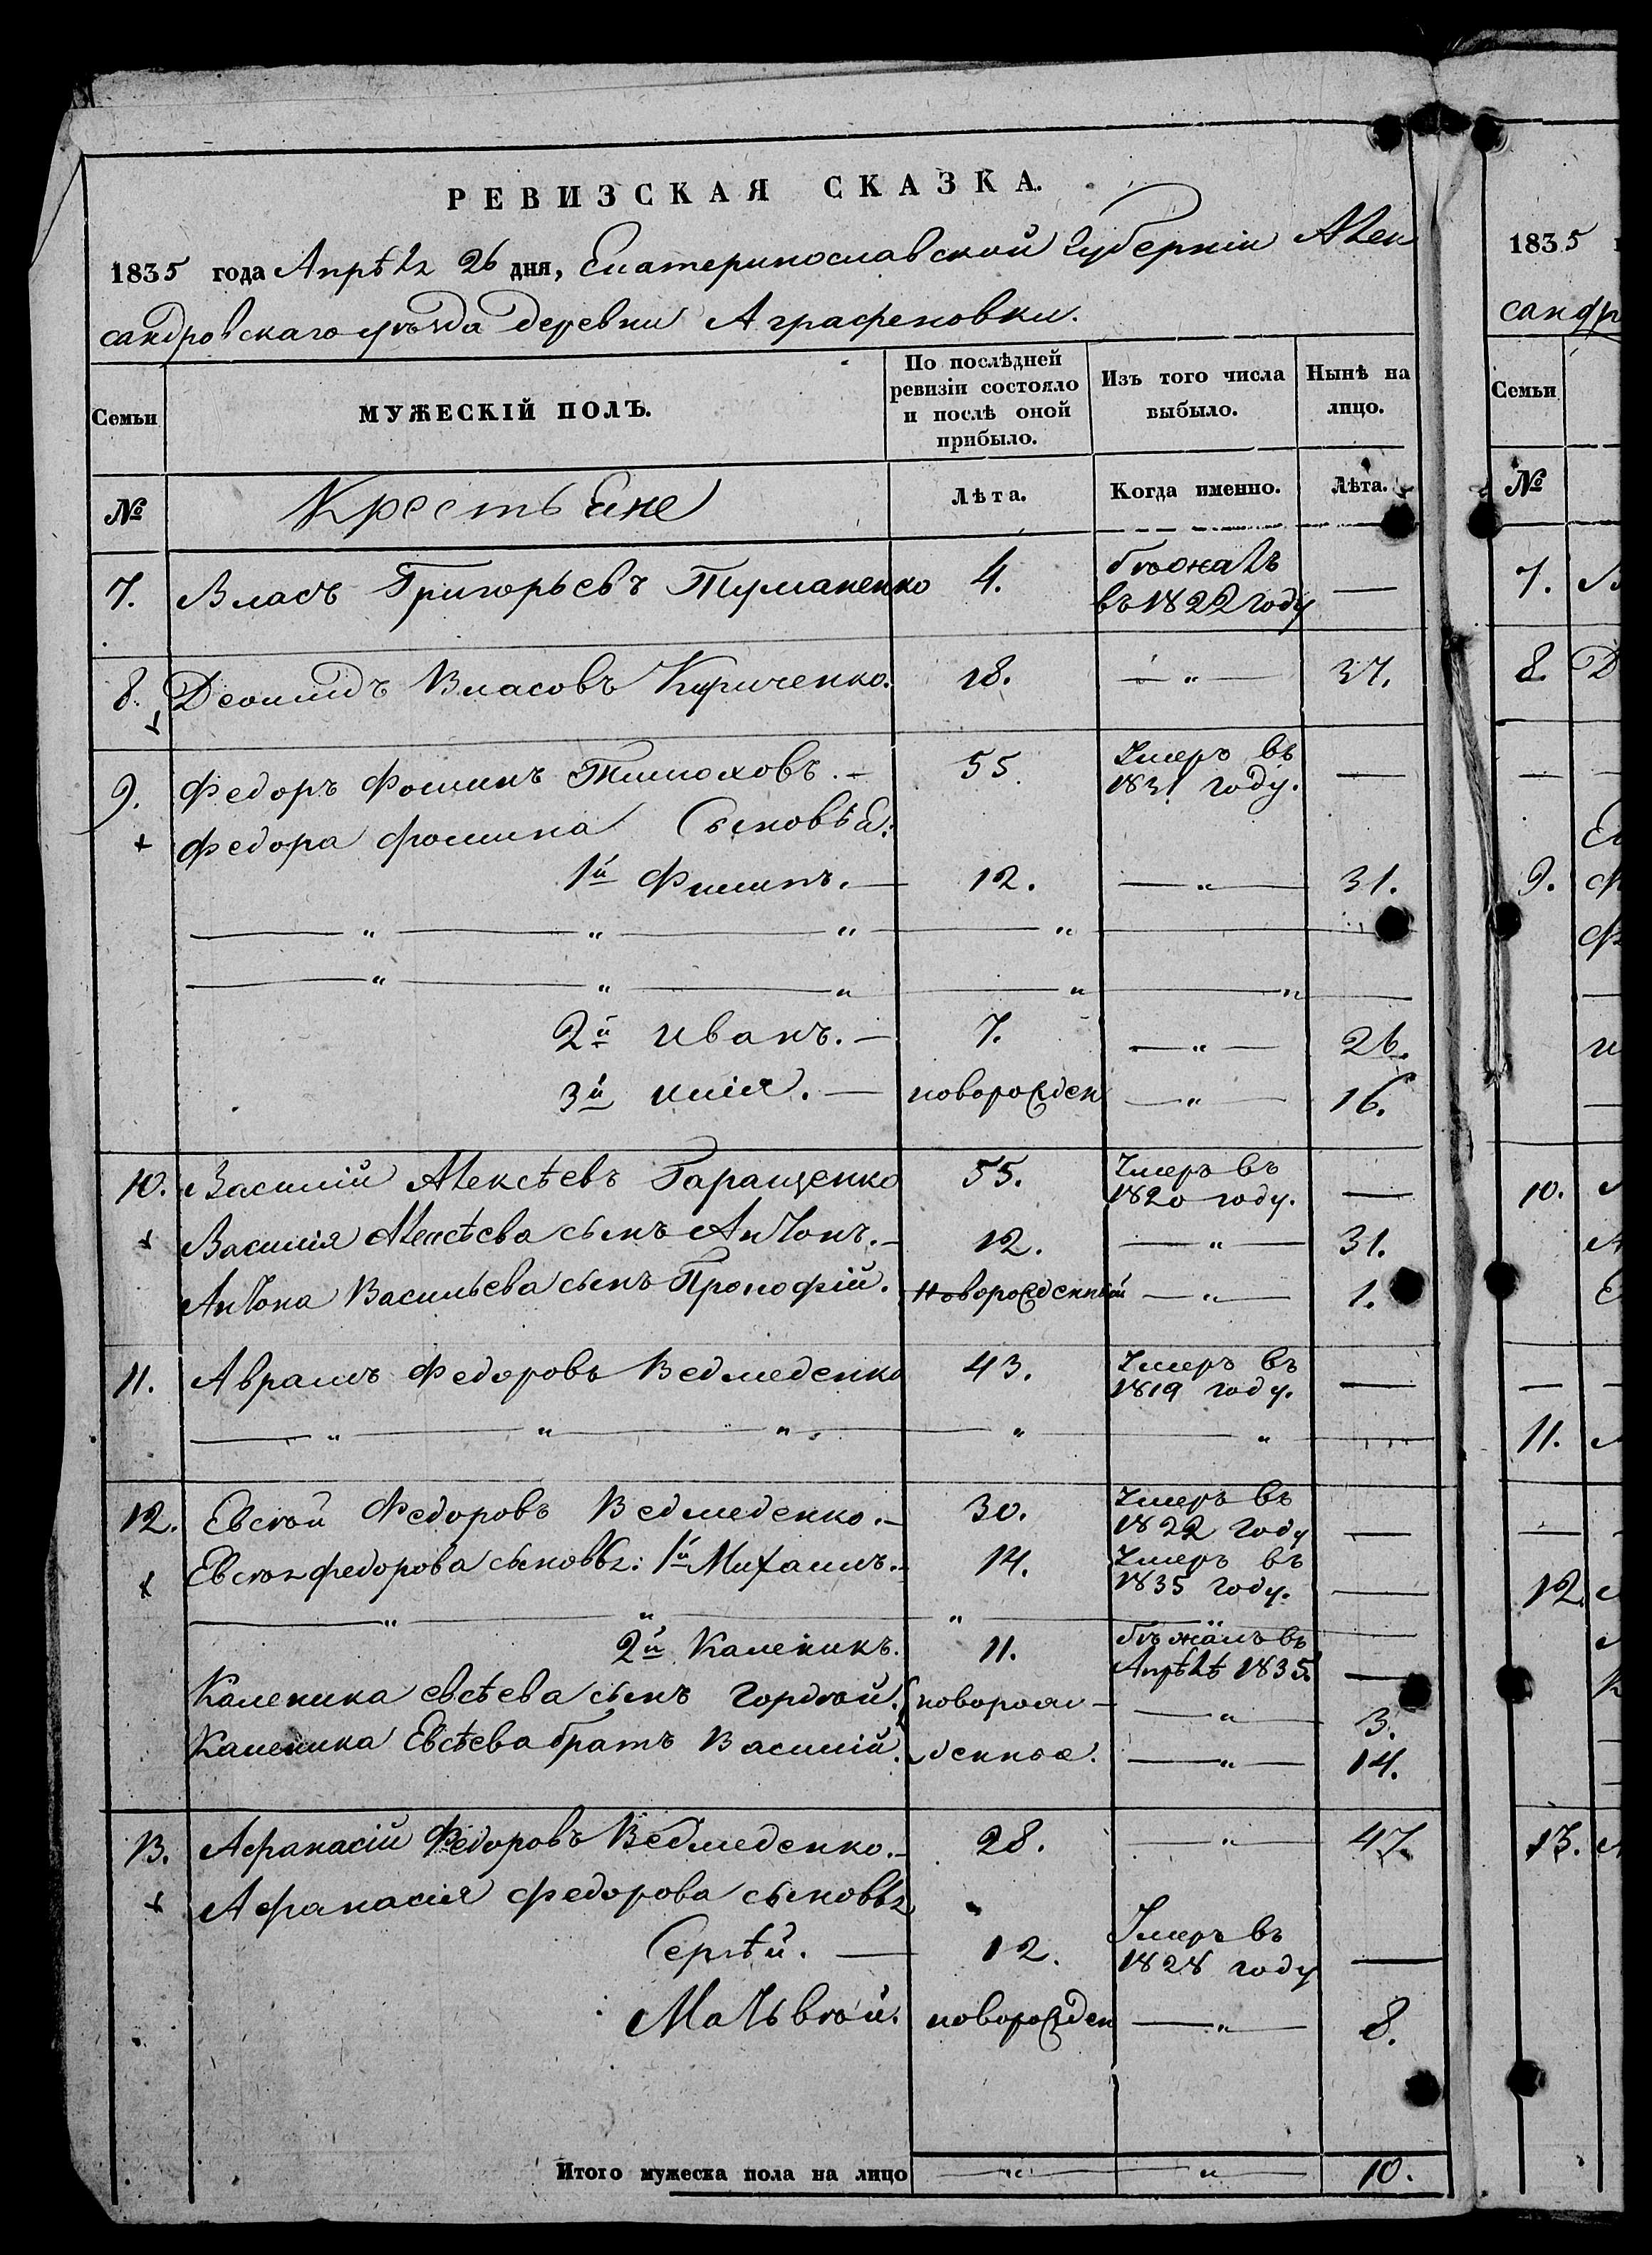 РЕВИЗСКАЯ СКАЗКА.
1835 года Апрѣля 26 дня, Екатеринославской Губерніи Алек
сандровскаго уѣзда деревни Аграфеновки.
Семьи
МУЖЕСКІЙ ПОЛЪ.
По послѣдней ревизіи состояло и послѣ оной прибыло.
Изъ того числа выбыло.
Нынѣ на лицо.
№ Крестьяне Лѣта. Когда именно. Лѣта.
7. Власъ Григорьевъ Туманенко 4. бѣжалъ въ 1822 году —
8. Деомидъ Власовъ Кириченко. 18. — " — 37.
9. Федоръ Фоминъ Тимоховъ. — 55. Умеръ въ 1831 году. —
+ Федора Фомина Сыновья:
1й Филипъ. — 12. — " — 31.
— " — " — " — " —
— " — " — " — " — " —
2й Иванъ. — 7. — " — 26.
3й Илія. — новорожден — " — 16.
10. Василій Алексѣевъ Гаращенко 55. Умеръ въ 1820 году. —
+ Василія Алексѣева сынъ Антонъ. — 12. — " — 31.
Антона Васильева сынъ Прокофій. новорожденный — " — 1.
11. Аврамъ Федоровъ Ведмеденко 43. Умеръ въ 1819 году. —
— " — " — " — " — " —
12. Евсѣй Федоровъ Ведмеденко. — 30. Умеръ въ 1822 году —
+ Евсѣя Федорова сыновья: 1й Михаилъ. — 14. Умеръ въ 1835 году. —
— " — " — " —
2й Каленикъ. 11. бѣжалъ въ Апрѣлѣ 1835. —
Каленика Евсѣева сынъ Гордѣй. новорож- — " — 3.
Каленика Евсѣева братъ Василій. денные. — " — 14.
13. Афанасій Федоровъ Ведмеденко. — 28. — " — 47.
+ Афанасія Федорова сыновья
Сергѣй. — 12. Умеръ въ 1828 году —
Матвѣй. новорожден — " — 8.
Итого мужеска пола на лицо — " — — " — 10.
1835
сандр
Семьи
№
7.
8. Д
9.
10.
11.
12.
13.